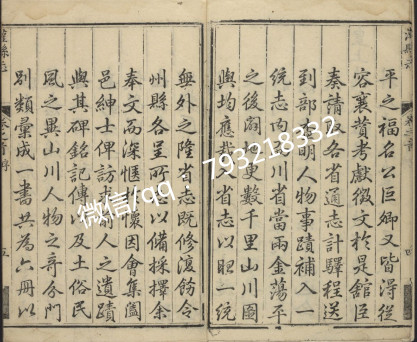 平之福名公巨卿又皆得從
容襄贊考獻徵文於是舘臣
奏請取各省通志計驛程送
到部有明人物事蹟補入一
統志内川省當兩金蕩平
之後闢更數千里山川圖
與均應裁省志以昭一統
無外之隆省志既修復飭令
州縣各呈志以備採擇余
奉文而深愜懷因會集闔
邑紳士俾訪前人之遺蹟
與其碑銘記傳以及土俗民
風之異山川人物之奇分門
别類彙成一書共為六冊以
五
微信/qq 793218332